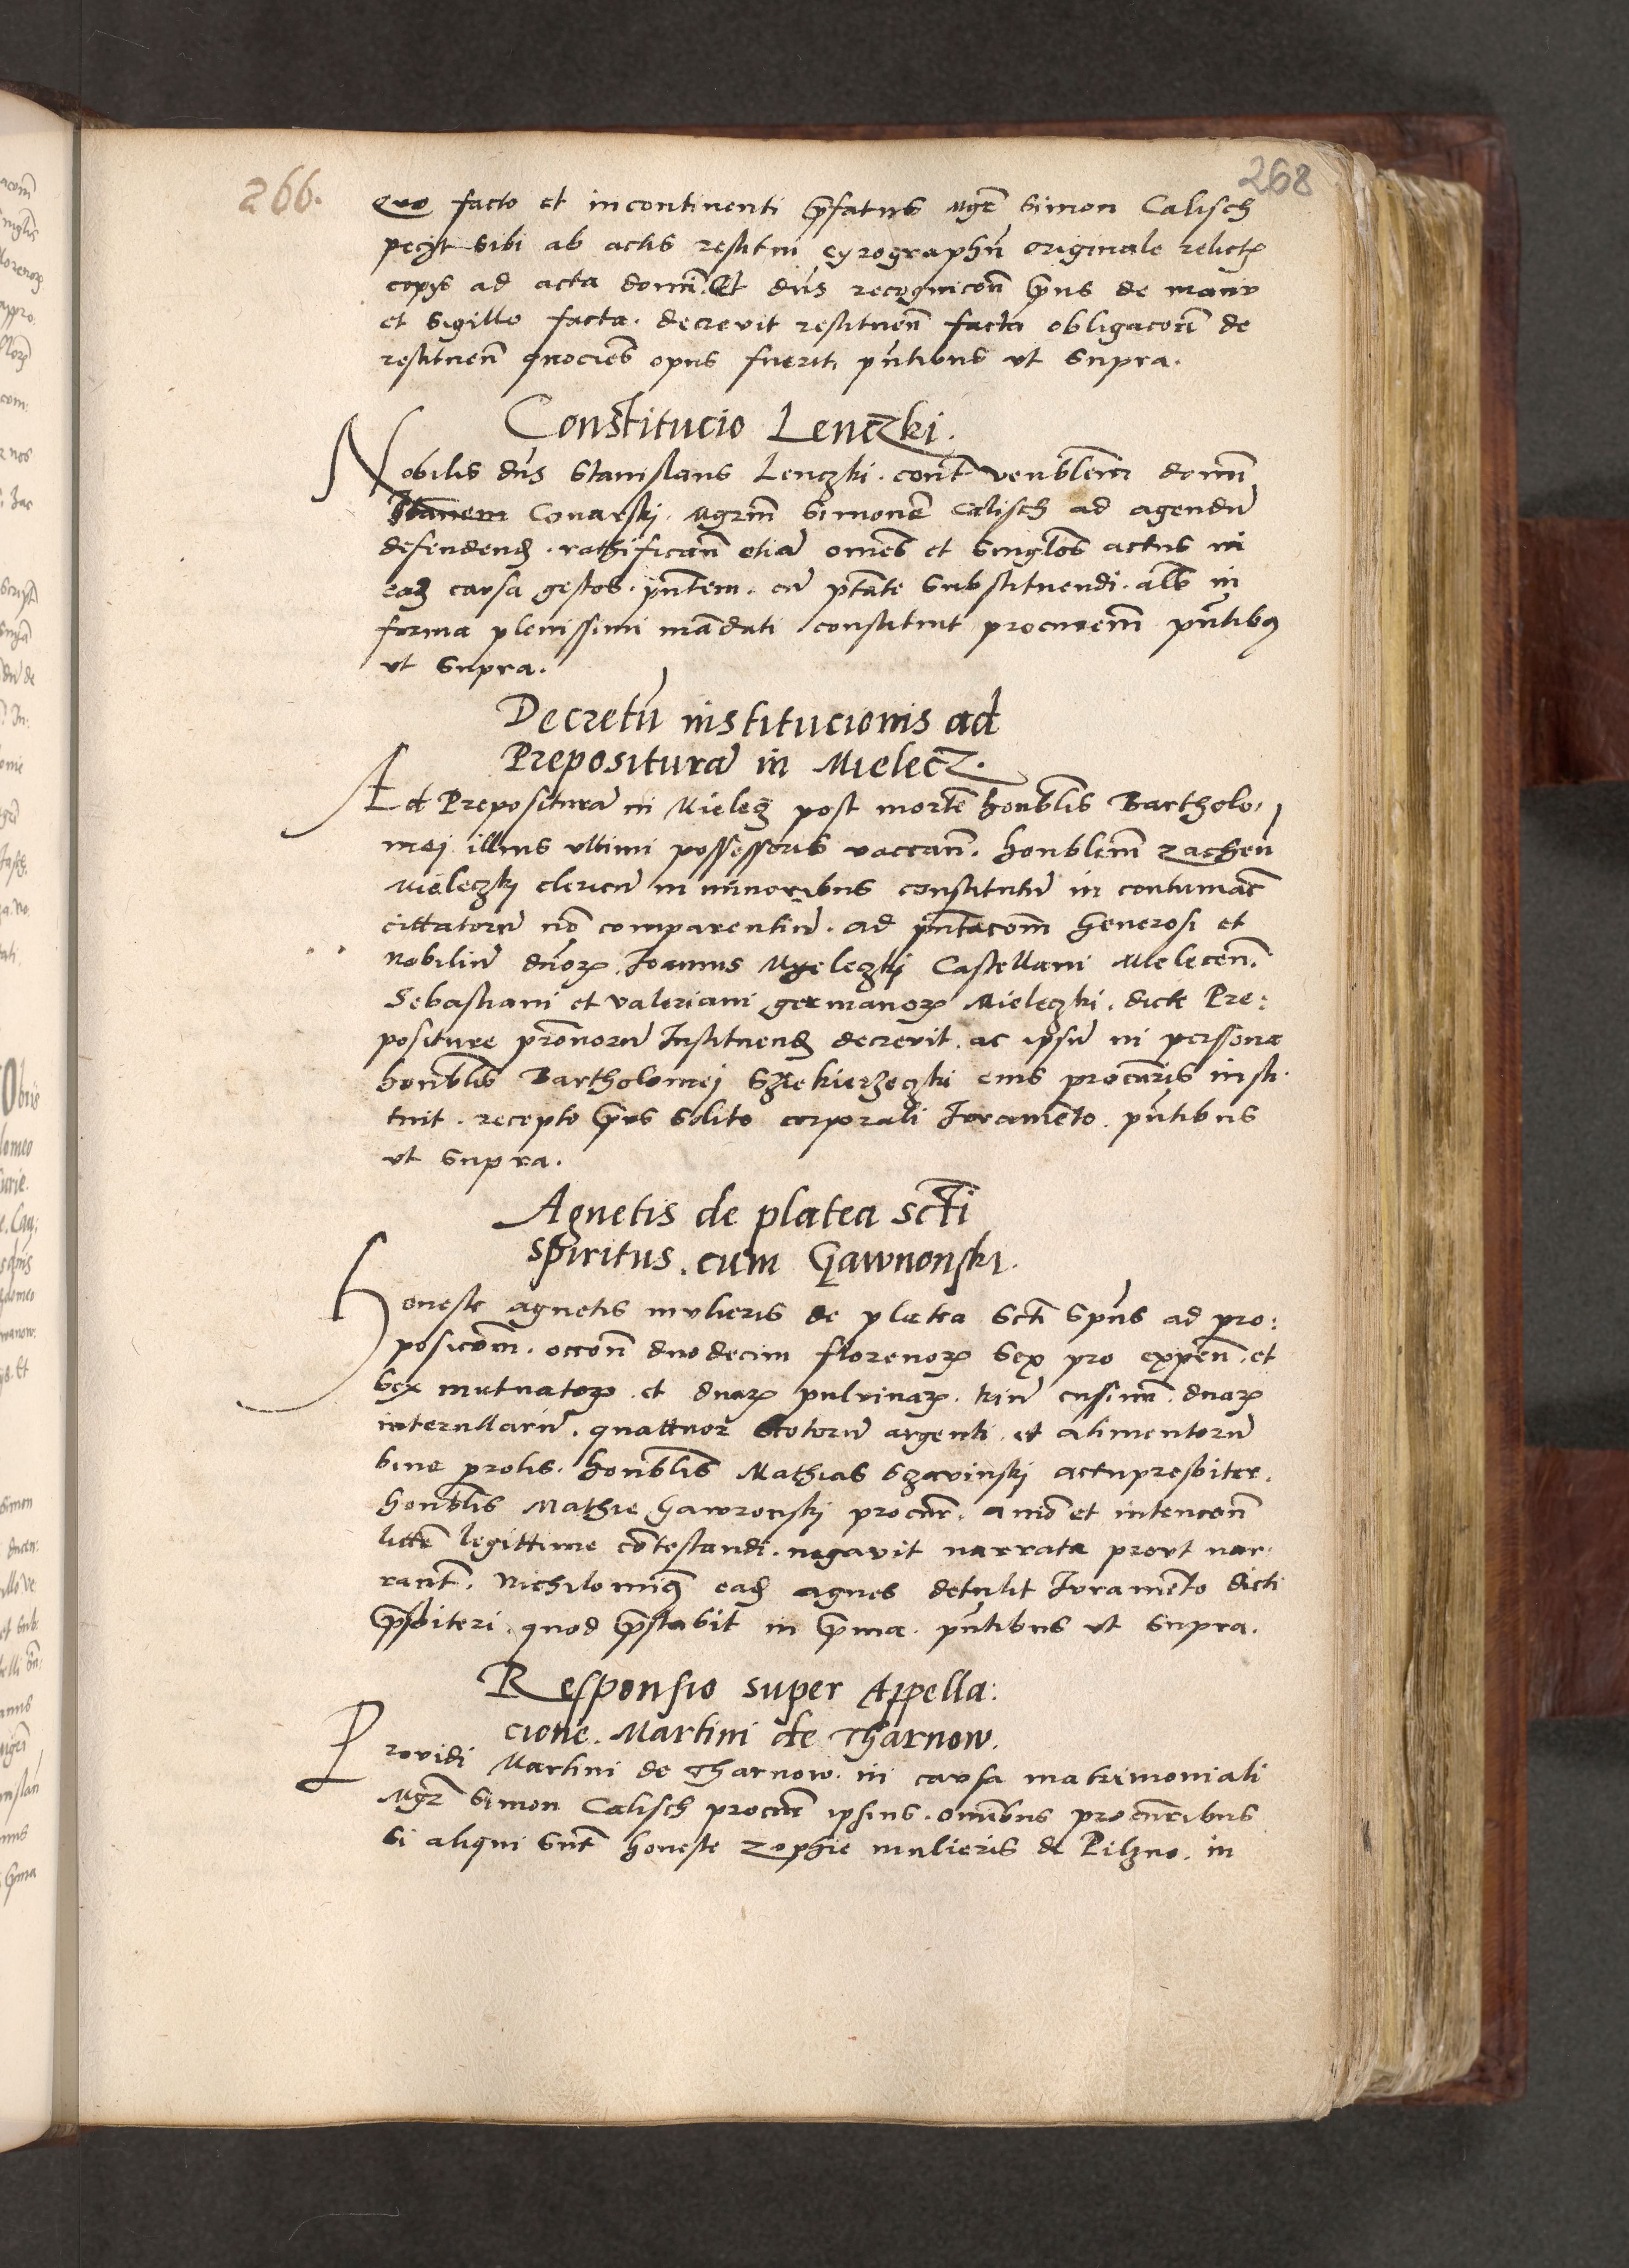 266.
268
Quo facto et incontinenti p̄fatus Mgr̄ Simon Calisch
pecyt sibi ab actis restitui cyrographū originale relictꝫ
copijs ad acta domī. Et dn̄s recognicōn p̄us de manu
et sigillo facta. decrevit restituen̄ facta obligacōn de
restituen̄ quocies opus fuerit p̄ntibus vt supra.
Constitucio Lenczki.
Nobilis dn̄s Stanislaus Lenczki. cont̄ ven̄blem domī
Conarskj. Mgrm̄ Simonē Calisch ad agendū
defendend. rathifican̄ etiā om̄es et singlos actus in
eadꝫ causa gestos. p̄ntem. cū p̄tate substituendi. als in
forma plenissimi mādati constituit procurem̄ p̄ntibꝫ
vt supra.
Decretū institucionis ad
Prepositurā in Mielecz.
Ad Prepositurā in Mielecz post mortē honblis Bartholo-
mej illius vltimi possessoris vaccan̄. honblem̄ Zacheū
Mieleczkj clericū in minoribus constitutū in contumac̄
cittatorū nō comparentiū. ad p̄ntacom̄ Generosi et
Nobiliū dn̄orꝫ Joannis Myeleczkj Castellani Melecen̄.
Sebastiani et Valeriani germanorꝫ Mieleczki. dicte Pre:
positure pr̄onorū Instituendꝫ decrevit. ac ipsū in persona
honblis Bartholomej Sziekierzeczki eius procuris insti-
tuit. recepto p̄us solito corporali Juramēto. p̄ntibus
vt supra.
Agnetis de platea sct̄i
spiritus. cum Gawronski.
Honeste agnetis mulieris de platea sct̄i Sp̄us ad pro:
posicōm. occōn duodecim florenorꝫ sex pro expen̄. et
sex mutuatorꝫ. et duarꝫ pulvinarꝫ. triū cussinū. duarꝫ
interullarū. quattuor scotorū argenti. et alimentorū
sine prolis. honblis Mathias Szavinskj actupresbiter.
honblis Mathie Gawronskj procur̄. animō et intencōn
littē legittime cōtestandi. negavit narrata prout nar-
rant̄. Nichilominꝫ eadꝫ agnes detulit Juramēto dicti
p̄sbiteri. quod p̄stabit in p̄ma. p̄ntibus vt supra.
Responsio super Appella:
cione. Martini de Tharnow.
Providi Martini de Tharnow. in causa matrimoniali
Mgr̄ Simon Calisch procur̄ ipsius. omībus procur̄ibus
si aliqui sunt honeste Zophie mulieris de Pilzno. in